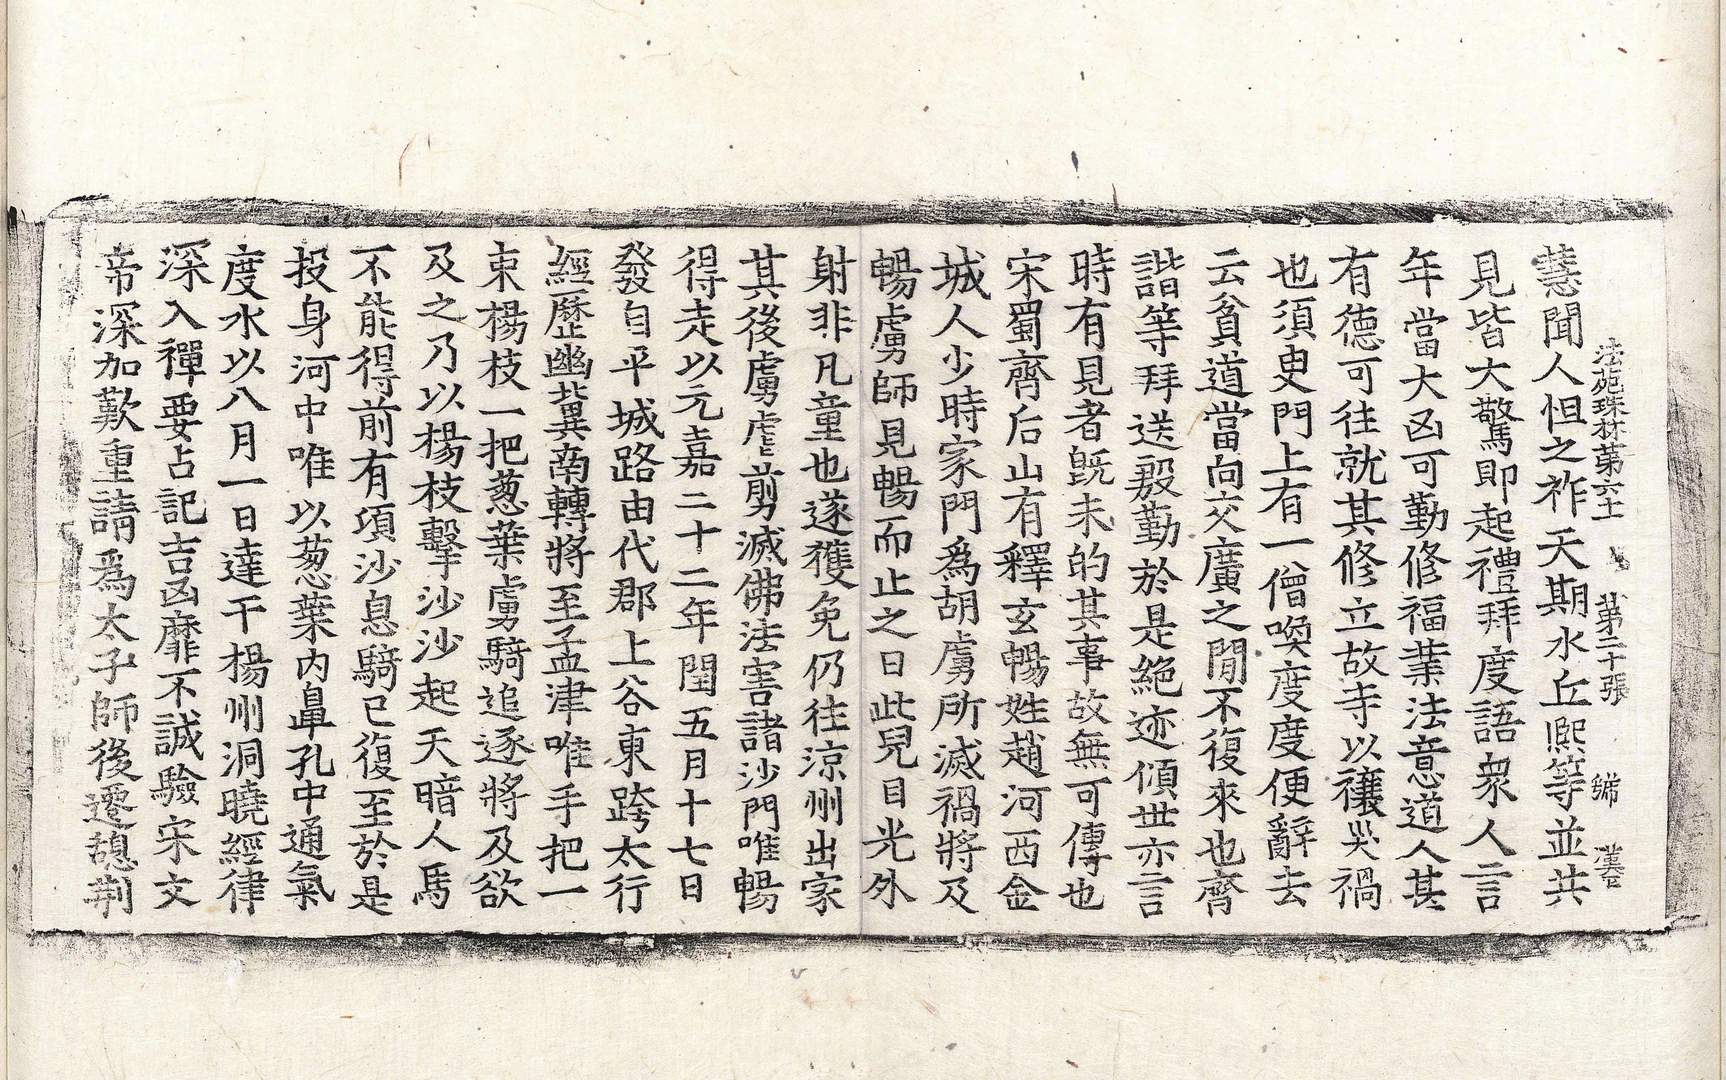 法苑珠林第六十一 第二十張 號 漢
慧聞人怛之祚天期水丘熙等並共
見皆大驚即起禮拜度語衆人言
年當大凶可勤修福業法意道人甚
有德可往就其修立故寺以禳災禍
也須臾門上有一僧喚度度便辭去
云貧道當向交廣之閒不復來也齊
諧等拜送殷勤於是絶迹傾世亦言
時有見者旣未的其事故無可傳也
宋蜀齊后山有釋玄暢姓趙河西金
城人少時家門爲胡虜所滅禍將及
暢虜師見暢而止之曰此兒目光外
射非凡童也遂獲免仍往涼州出家
其後虜虐剪滅佛法害諸沙門唯暢
得走以元嘉二十二年閏五月十七日
發自平城路由代郡上谷東跨太行
經歷幽冀南轉將至孟津唯手把一
束楊枝一把葱葉虜騎追逐將及欲
及之乃以楊枝擊沙沙起天暗人馬
不能得前有項沙息騎已復至於是
投身河中唯以葱葉内鼻孔中通氣
度水以八月一日達于楊州洞曉經律
深入禪要占記吉凶靡不誠驗宋文
帝深加歎重請爲太子師後遷憩荆